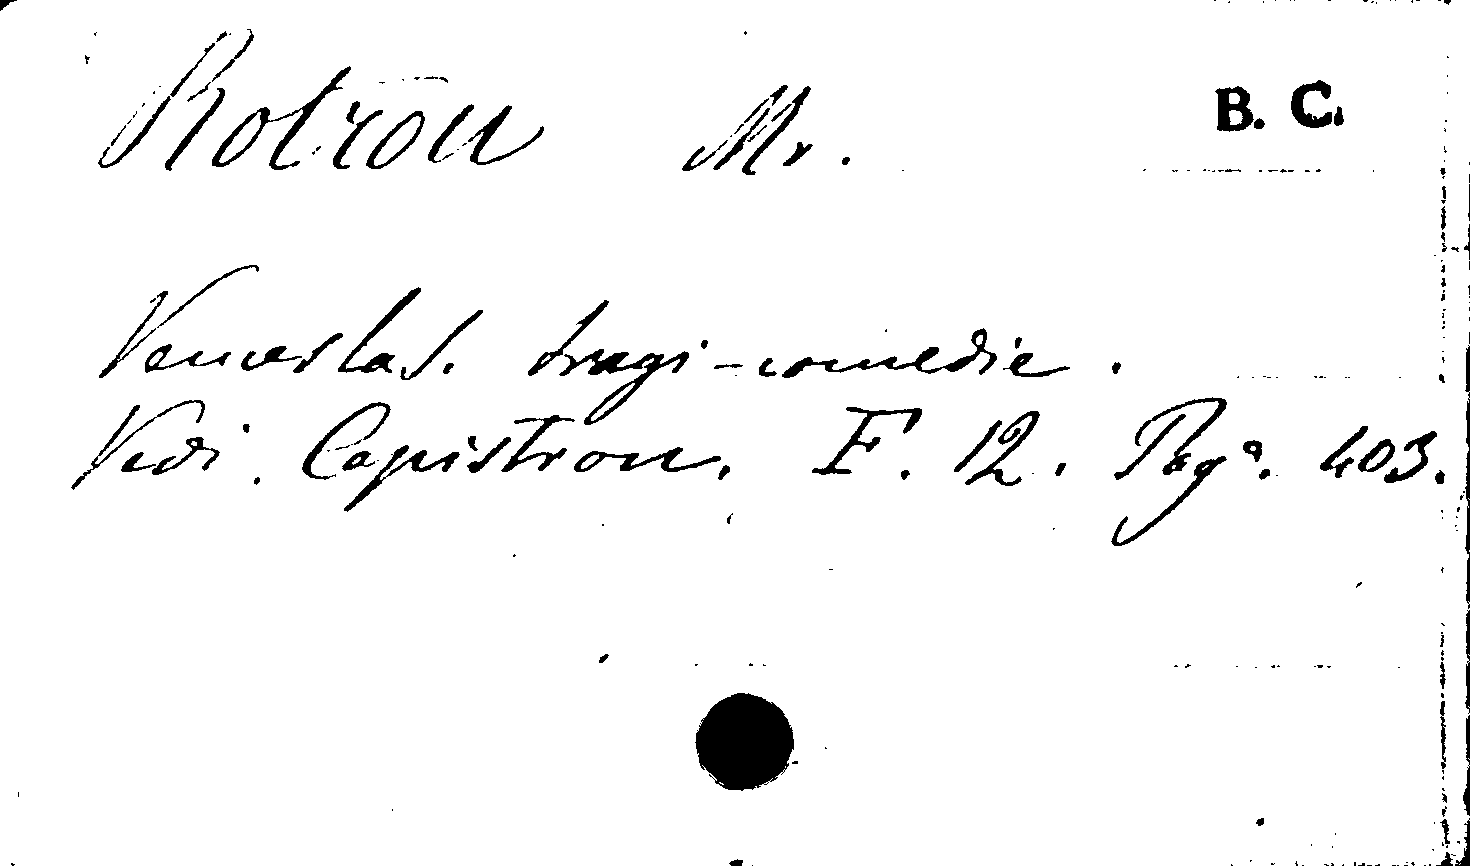 Rotrou Mr. B. C.
Venceslas. tragi-comedie.
Vedi. Capistron. F. 12. Pagª. 403.